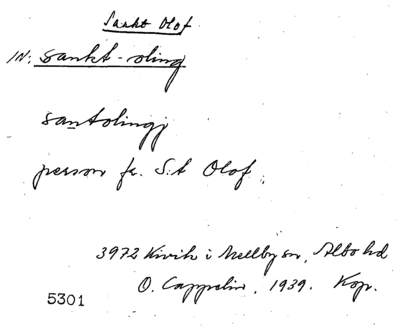 Sankt Olof
IN: sankt-oling
santolingj
person fr. S:t Olof.
3972 Kivik i Mellby sn, Albo hd
O. Cappelin, 1939. Kop.
5301